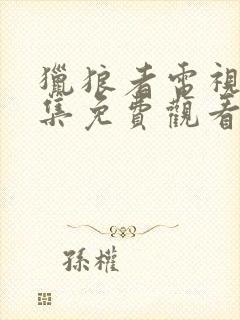 獵狼者電視
集免費觀看
孫權